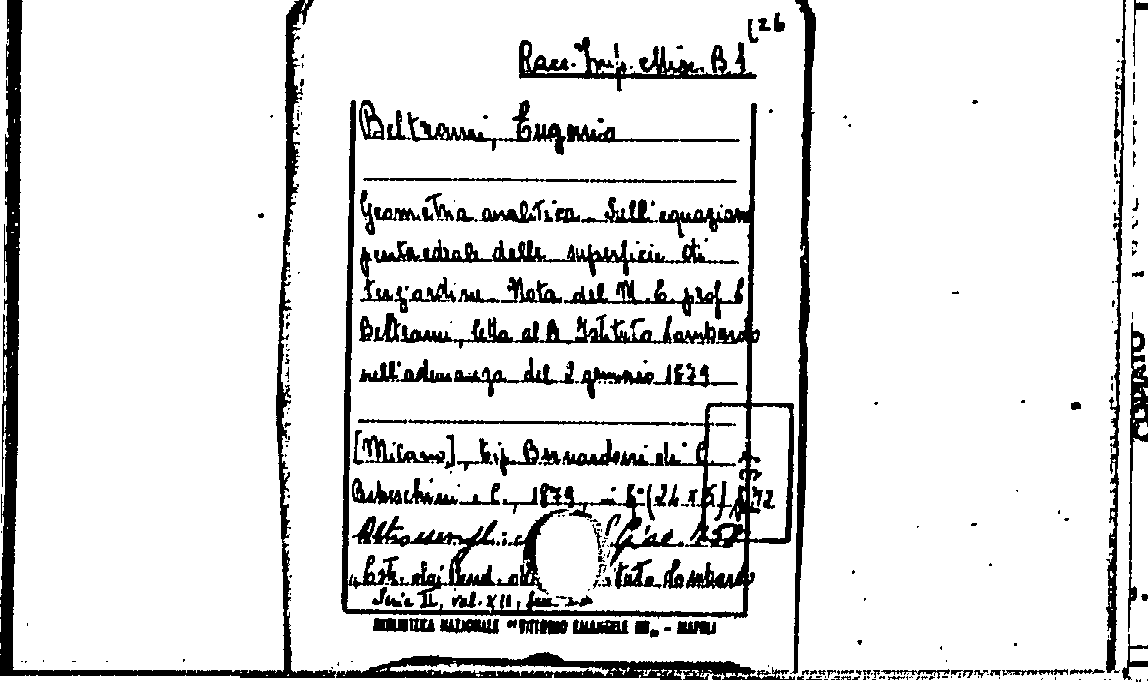 (26
Racc. Imp. Misc. B 1
Beltrami, Eugenio
Geometria analitica. Sull'equazione
pentaedrale delle superficie di
terz'ordine. Nota del M. E. prof. E
Beltrami, letta al R. Istituto Lombardo
nell'adunanza del 2 gennaio 1879
[Milano], tip. Bernardoni di C.
Rebeschini e C., 1879 8° (24 x 15) p. 12
Altro
Estr. dai Rend. Lombardo
Serie II, vol. XII,
BIBLIOTECA NAZIONALE "VITTORIO EMANUELE III" - NAPOLI
COPIATO